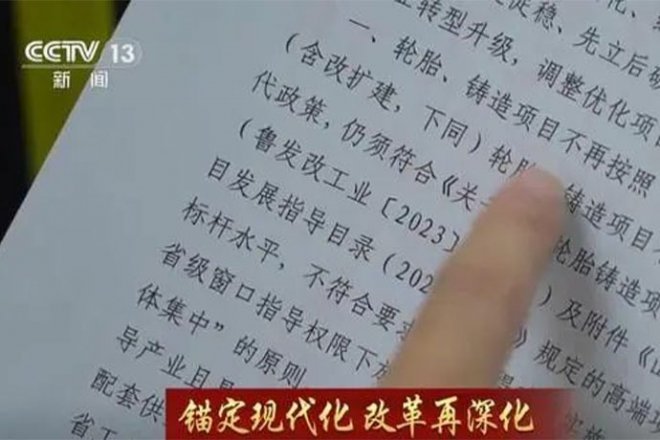 CCTV 13
新闻
立转型升级，调整优化项目
一、轮胎、铸造项目不再按照
（含改扩建，下同）轮胎、铸造项目
代政策，仍须符合《关 轮胎铸造项
（鲁发改工业〔2023〕
目发展指导目录（202 ）及附件《
标杆水平，不符合要求 》规定的高端项
省级窗口指导权限下放
体集中”的原则
导产业且
配套供
省工
锚定现代化 改革再深化